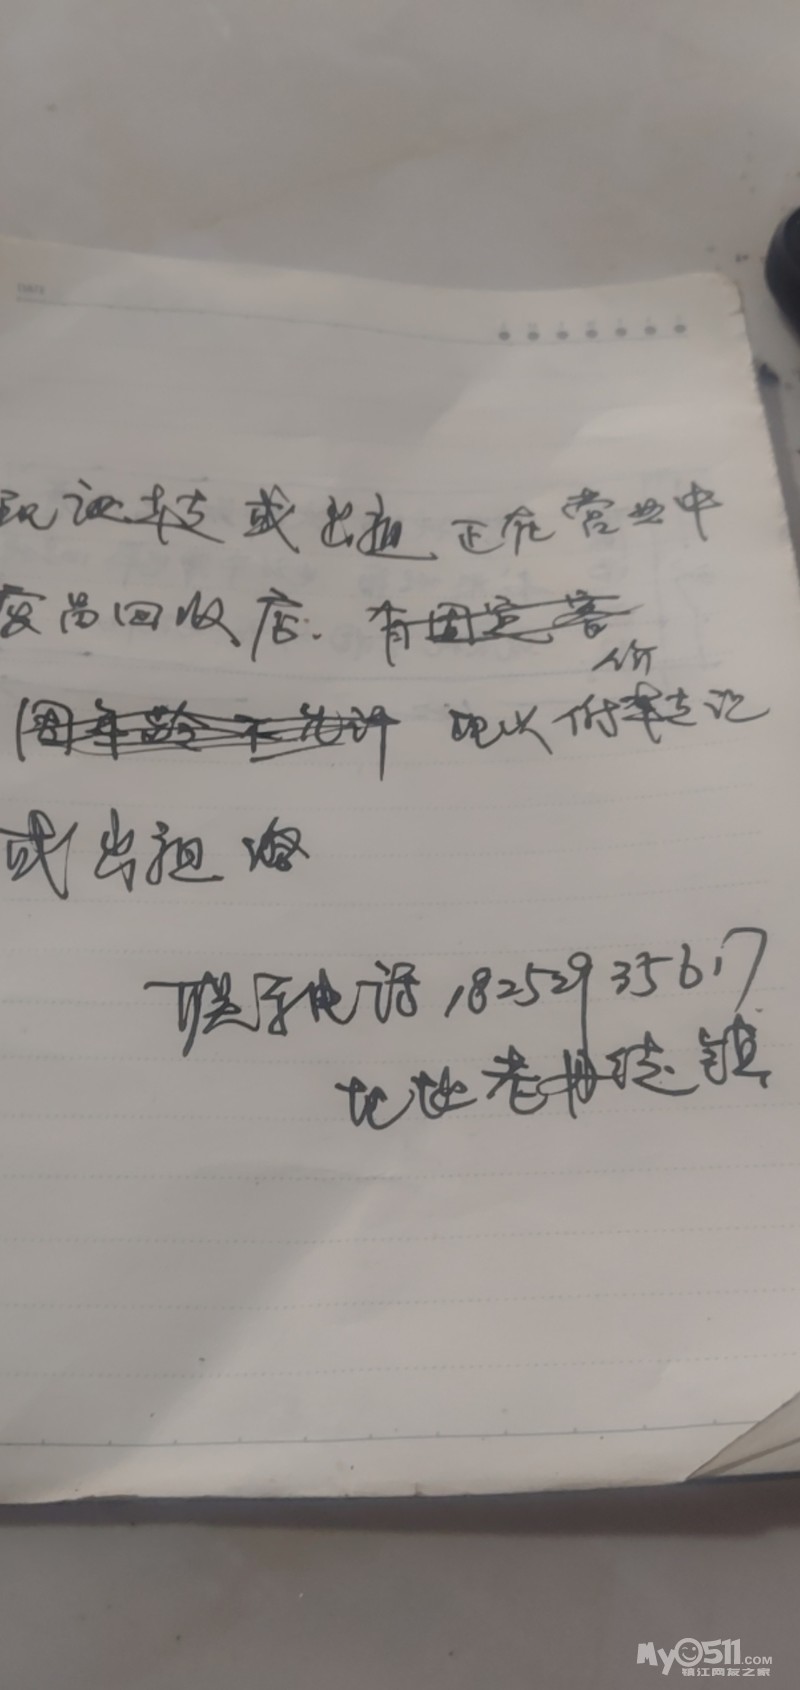 DATE
现 转 或出租 正在营业中
废品回收店. 有固定客
因年龄不允许 现以 价 转
或出租
联系电话 18252935617
地址老 镇
My0511.COM
镇江网友之家